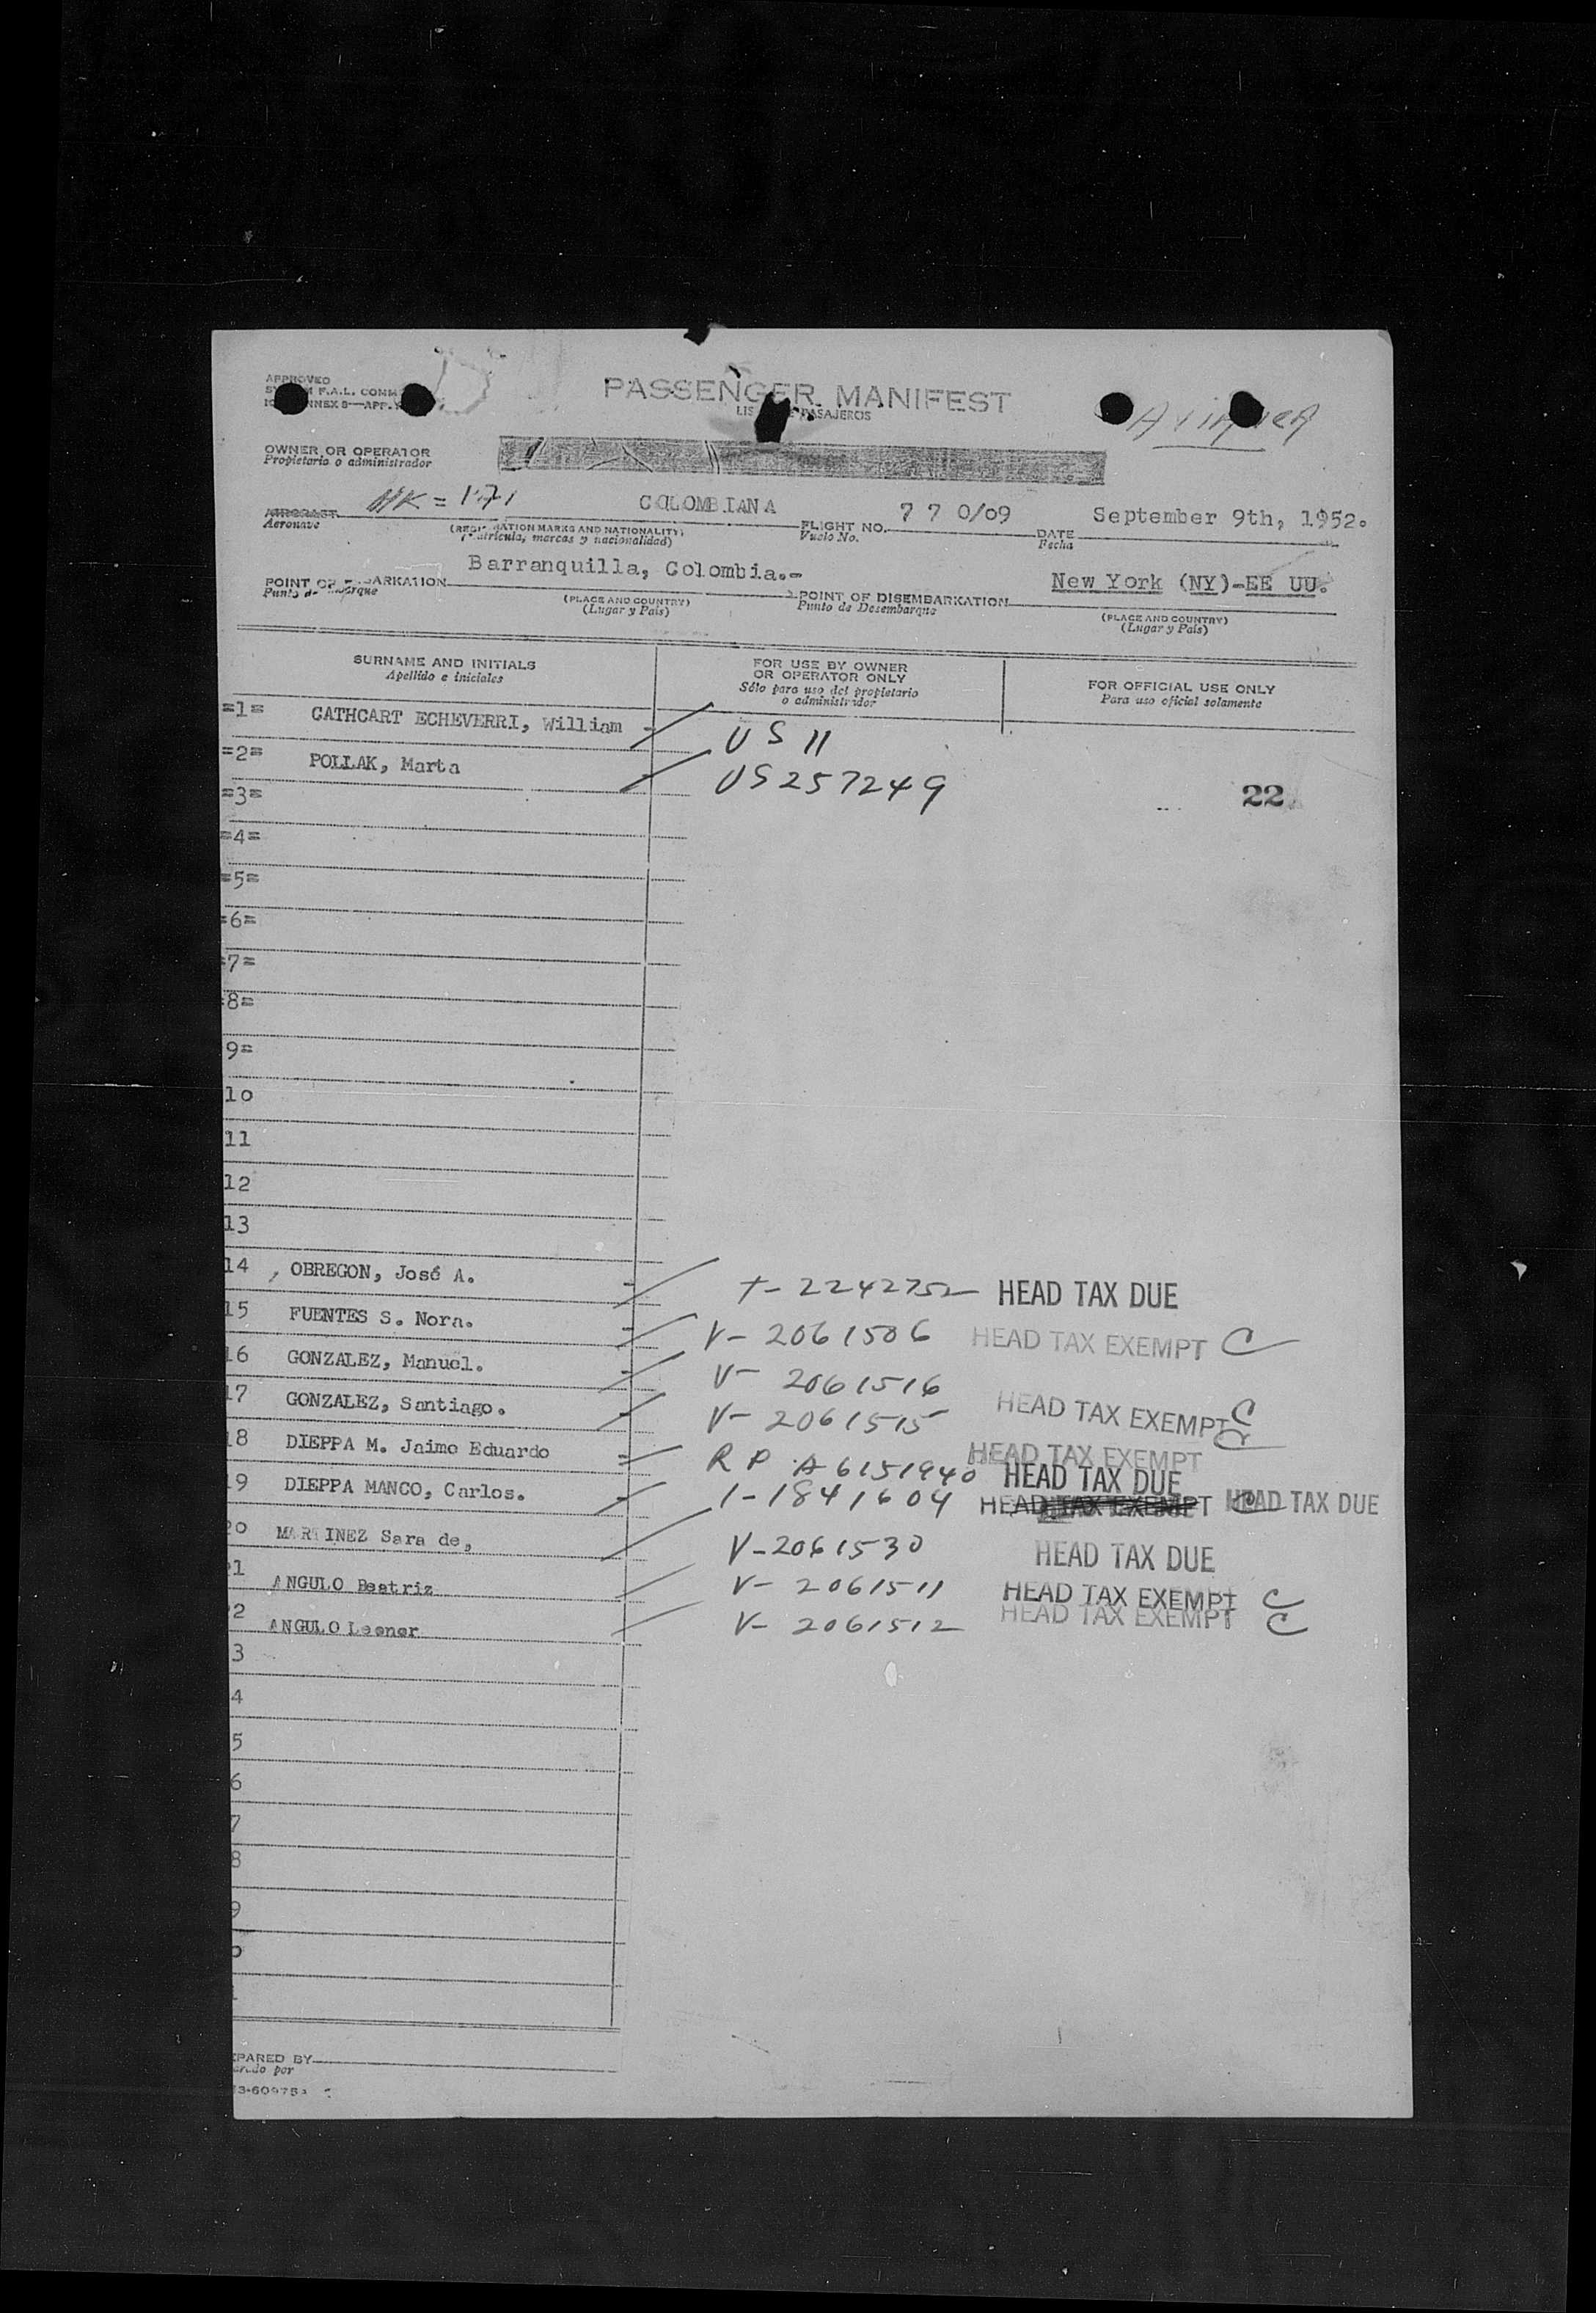 APPROVED
F.A.L. COMM
ANNEX 9—APP.
PASSENGER MANIFEST
PASAJEROS
AVIANCA
OWNER OR OPERATOR
Propietario o administrador
HK = 171
COLOMBIANA
7 7 0/09
September 9th, 1952.
AIRCRAFT
Aeronave
(REGISTRATION MARKS AND NATIONALITY)
(Matrícula, marcas y nacionalidad)
FLIGHT NO.
Vuelo No.
DATE
Fecha
Barranquilla, Colombia.-
New York (NY)-EE UU.
POINT OF EMBARKATION
Punto de Embarque
(PLACE AND COUNTRY)
(Lugar y País)
POINT OF DISEMBARKATION
Punto de Desembarque
(PLACE AND COUNTRY)
(Lugar y País)
SURNAME AND INITIALS
Apellido e iniciales
FOR USE BY OWNER
OR OPERATOR ONLY
Sólo para uso del propietario
o administrador
FOR OFFICIAL USE ONLY
Para uso oficial solamente
=1= CATHCART ECHEVERRI, William - US 11
=2= POLLAK, Marta - US 257249
=3= 22
=4=
=5=
=6=
=7=
=8=
9=
10
11
12
13
14 OBREGON, José A. - T- 2242752 HEAD TAX DUE
15 FUENTES S. Nora. - V- 2061506 HEAD TAX EXEMPT C
16 GONZALEZ, Manuel. - V- 2061516
17 GONZALEZ, Santiago. - V- 2061515 HEAD TAX EXEMPT C
HEAD TAX EXEMPT
18 DIEPPA M. Jaime Eduardo = R P A6151940 HEAD TAX DUE
19 DIEPPA MANCO, Carlos. - 1-1841604 HEAD TAX EXEMPT C HEAD TAX DUE
20 MARTINEZ Sara de, V-2061530 HEAD TAX DUE
21 ANGULO Beatriz V- 2061511 HEAD TAX EXEMPT C
22 ANGULO Leonor V- 2061512 HEAD TAX EXEMPT C
3
4
5
6
7
8
9
PARED BY
por